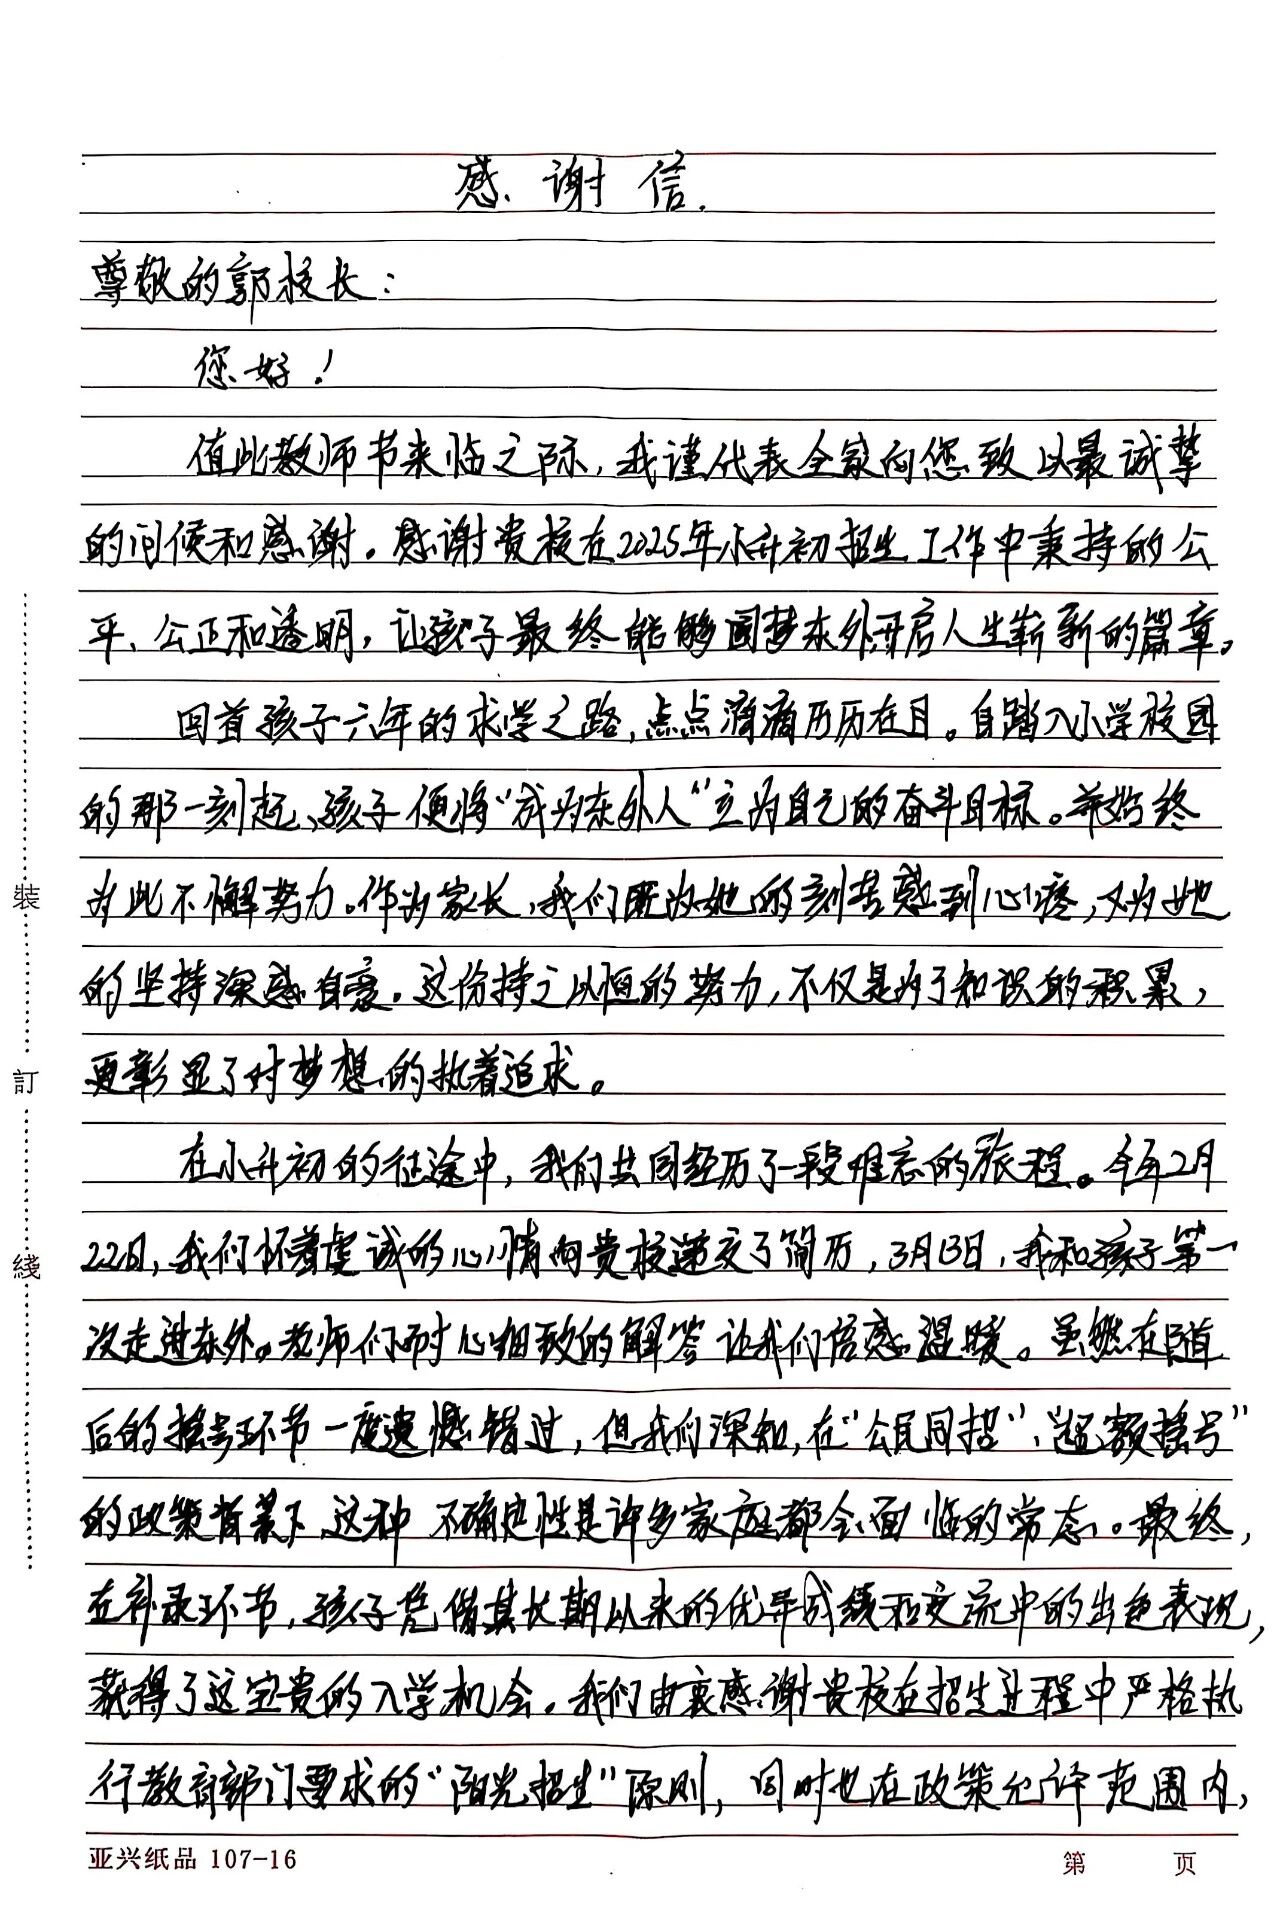 感谢信.
尊敬的郭校长:
您好!
值此教师节来临之际,我谨代表全家向您致以最诚挚
的问候和感谢。感谢贵校在2025年小升初招生工作中秉持的公
平、公正和透明,让孩子最终能够圆梦东外开启人生崭新的篇章。
回首孩子六年的求学之路,点点滴滴历历在目。自踏入小学校园
的那一刻起、孩子便将“成为东外人”立为自己的奋斗目标。并始终
为此不懈努力。作为家长,我们既为她的刻苦感到心疼,又为她
的坚持深感自豪。这份持之以恒的努力,不仅是为了知识的积累,
更彰显了对梦想的执着追求。
在小升初的征途中,我们共同经历了一段难忘的旅程。今年2月
22日,我们怀着虔诚的心情向贵校递交了简历,3月13日,我和孩子第一
次走进东外。老师们耐心细致的解答让我们倍感温暖。虽然在随
后的摇号环节一度遗憾错过,但我们深知,在“公民同招”、“超额摇号”
的政策背景下,这种不确定性是许多家庭都会面临的常态。最终,
在补录环节,孩子凭借其长期以来的优异成绩和交流中的出色表现,
获得了这宝贵的入学机会。我们由衷感谢贵校在招生过程中严格执
行教育部门要求的“阳光招生”原则,同时也在政策允许范围内,
裝
訂
綫
亚兴纸品 107-16
第 页